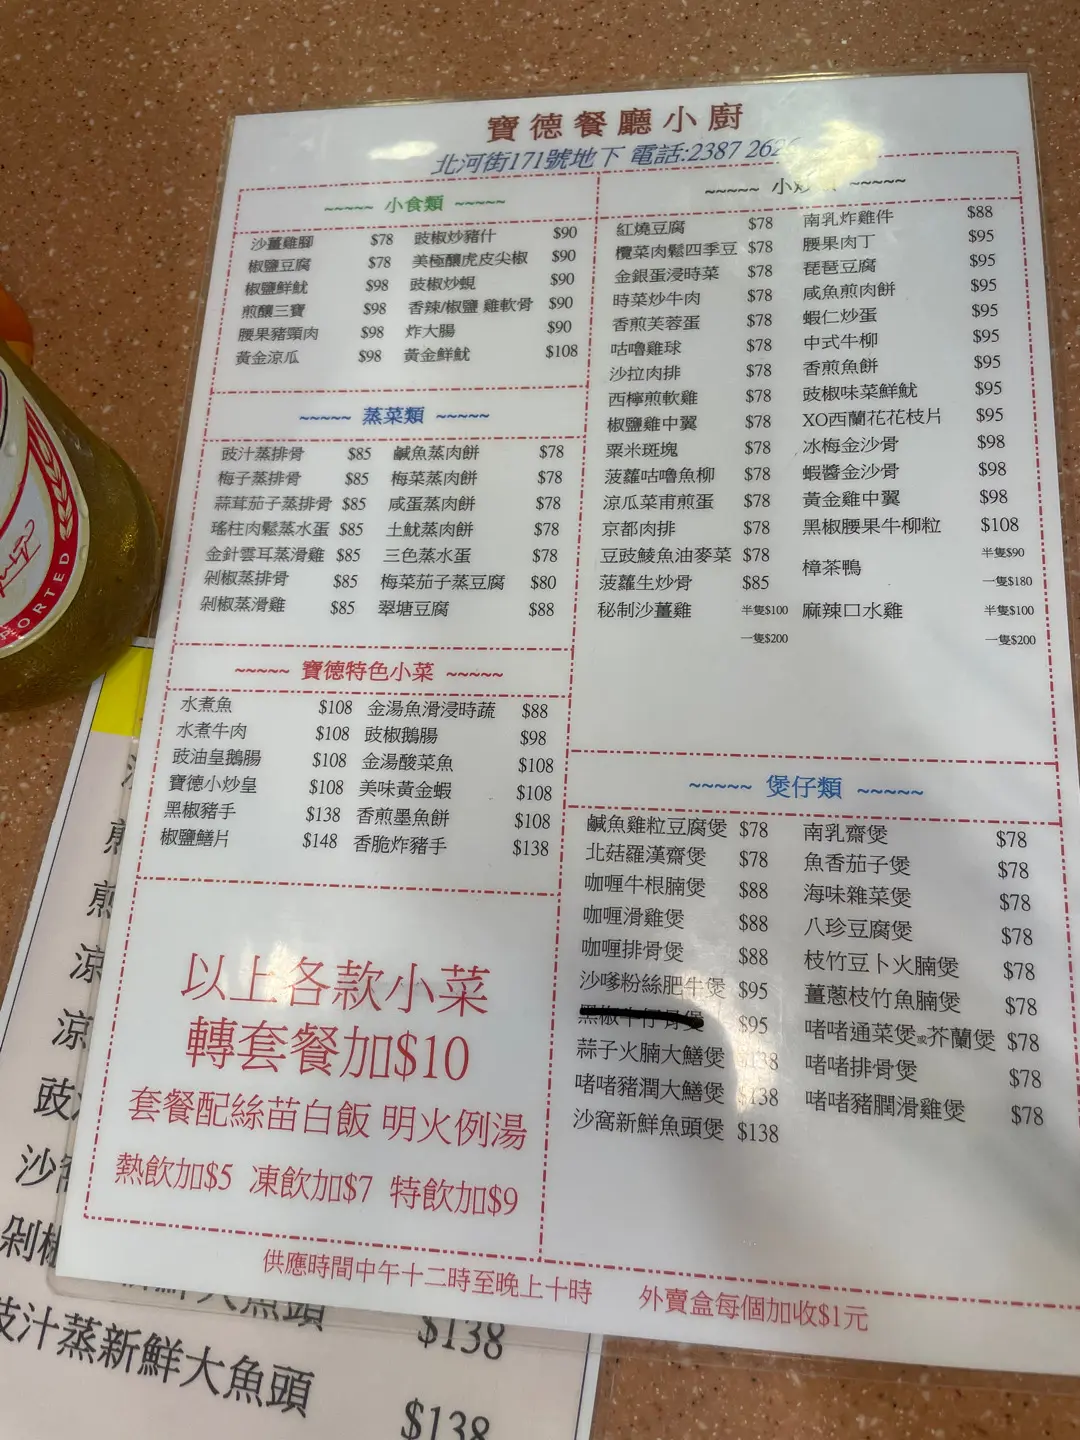 寶德餐廳小廚
北河街171號地下 電話:2387 262
~~~~~ 小食類 ~~~~~
沙薑雞腳 $78 豉椒炒豬什 $90
椒鹽豆腐 $78 美極釀虎皮尖椒 $90
椒鹽鮮魷 $98 豉椒炒蜆 $90
煎釀三寶 $98 香辣/椒鹽 雞軟骨 $90
腰果豬頸肉 $98 炸大腸 $90
黃金涼瓜 $98 黃金鮮魷 $108
~~~~~ 蒸菜類 ~~~~~
豉汁蒸排骨 $85 鹹魚蒸肉餅 $78
梅子蒸排骨 $85 梅菜蒸肉餅 $78
蒜茸茄子蒸排骨 $85 咸蛋蒸肉餅 $78
瑤柱肉鬆蒸水蛋 $85 土魷蒸肉餅 $78
金針雲耳蒸滑雞 $85 三色蒸水蛋 $78
剁椒蒸排骨 $85 梅菜茄子蒸豆腐 $80
剁椒蒸滑雞 $85 翠塘豆腐 $88
~~~~~ 寶德特色小菜 ~~~~~
水煮魚 $108 金湯魚滑浸時蔬 $88
水煮牛肉 $108 豉椒鵝腸 $98
豉油皇鵝腸 $108 金湯酸菜魚 $108
寶德小炒皇 $108 美味黃金蝦 $108
黑椒豬手 $138 香煎墨魚餅 $108
椒鹽鱔片 $148 香脆炸豬手 $138
以上各款小菜
轉套餐加$10
套餐配絲苗白飯 明火例湯
熱飲加$5 凍飲加$7 特飲加$9
~~~~~ 小炒 ~~~~~
紅燒豆腐 $78 南乳炸雞件 $88
欖菜肉鬆四季豆 $78 腰果肉丁 $95
金銀蛋浸時菜 $78 琵琶豆腐 $95
時菜炒牛肉 $78 咸魚煎肉餅 $95
香煎芙蓉蛋 $78 蝦仁炒蛋 $95
咕嚕雞球 $78 中式牛柳 $95
沙拉肉排 $78 香煎魚餅 $95
西檸煎軟雞 $78 豉椒味菜鮮魷 $95
椒鹽雞中翼 $78 XO西蘭花花枝片 $95
粟米斑塊 $78 冰梅金沙骨 $98
菠蘿咕嚕魚柳 $78 蝦醬金沙骨 $98
涼瓜菜甫煎蛋 $78 黃金雞中翼 $98
京都肉排 $78 黑椒腰果牛柳粒 $108
豆豉鯪魚油麥菜 $78 樟茶鴨 半隻$90
菠蘿生炒骨 $85 一隻$180
秘制沙薑雞 半隻$100 麻辣口水雞 半隻$100
一隻$200 一隻$200
~~~~~ 煲仔類 ~~~~~
鹹魚雞粒豆腐煲 $78 南乳齋煲 $78
北菇羅漢齋煲 $78 魚香茄子煲 $78
咖喱牛根腩煲 $88 海味雜菜煲 $78
咖喱滑雞煲 $88 八珍豆腐煲 $78
咖喱排骨煲 $88 枝竹豆卜火腩煲 $78
沙嗲粉絲肥牛煲 $95 薑蔥枝竹魚腩煲 $78
黑椒牛仔骨煲 $95 啫啫通菜煲或芥蘭煲 $78
蒜子火腩大鱔煲 $138 啫啫排骨煲 $78
啫啫豬潤大鱔煲 $138 啫啫豬膶滑雞煲 $78
沙窩新鮮魚頭煲 $138
供應時間中午十二時至晚上十時 外賣盒每個加收$1元
煎
涼
涼
豉
沙窩
剁椒
大魚頭 $138
豉汁蒸新鮮大魚頭 $138
ORTED